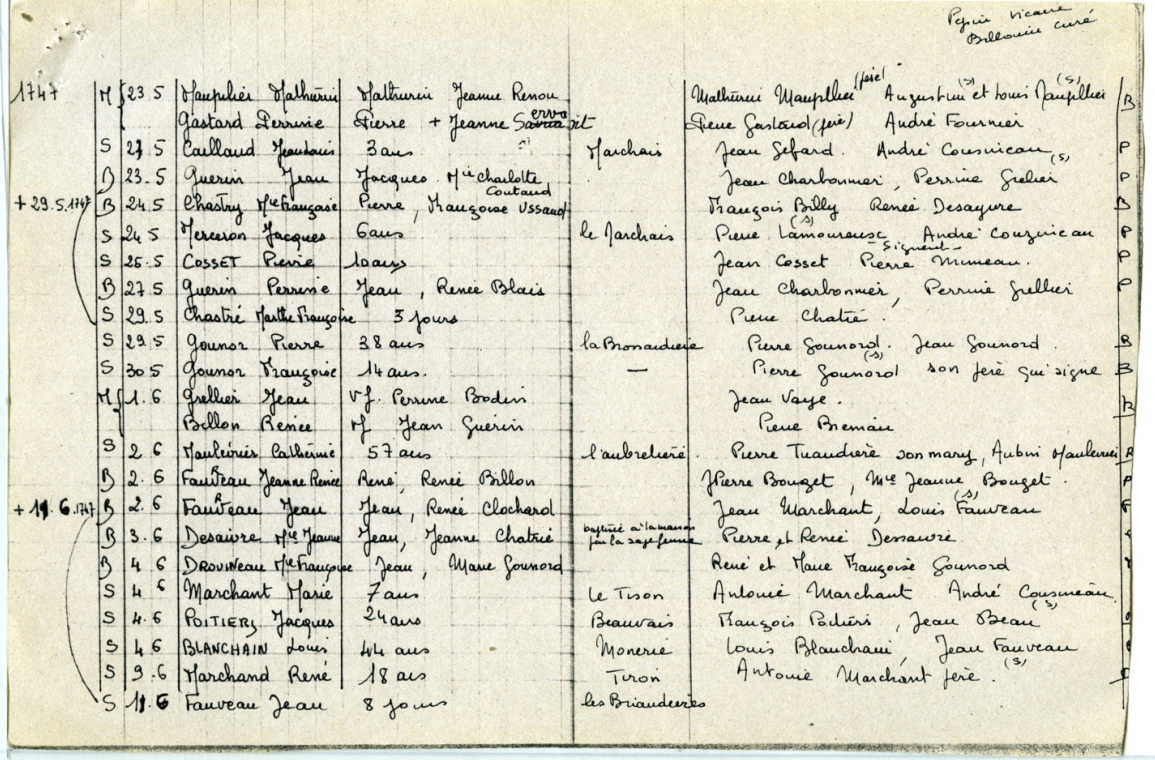 Pepin vicaire
Billouin curé
1747 M 23 5 Maupilier Mathurin Mathurin Jeanne Renou Mathurin Maupillier (père) Augustin (s) et Louis Maupillier (s) B
Gastard Perrine Pierre + Jeanne Pierre Gastard (père) André Fournier
S 23 5 Caillaud Jean Louis 3 ans Marchais Jean Gefard. André Cousineau P
B 23.5 Guerin Jean Jacques. Mie Charlotte Coutaud Jean Charbonnier, Perrine Grelier (s) P
+ 29.5.1747 B 24 5 Chastry Mie Françoise Pierre, Françoise Ussaud François Billy Renée Desayvre B
S 24 5 Merceron Jacques 6 ans le Marchais Pierre Lamoureuse (s) André Couzineau P
S 25.5 COSSET Pierre 10 ans Jean Cosset Pierre Mimeau. - Signent - P
B 27 5 Guerin Perrine Jean, Renée Blais Jean Charbonnier, Perrine Grellier P
S 29.5 Chastré Marthe Françoise 5 jours Pierre Chatié.
S 29.5 Gounor Pierre 38 ans la Bronaudiere Pierre Gounord. Jean Gounord. B
S 30 5 Gounor Françoise 14 ans. — Pierre Gounord (s) son père qui signe B
M 1.6 Grellier Jean Vf. Perrine Bodin Jean Vaye. B
Billon Renée Vf Jean Guerin Pierre Bremau
S 2 6 Maulevrier Catherine 57 ans l'aubretiere. Pierre Tuaudière son mary, Aubin Maulevrier B
B 2.6 Fauveau Jeanne Renée René, Renée Billon JPierre Bouget, Mie Jeanne Bouget. P
+ 11.6.1747 B 2.6 Fauveau Jean Jean, Renée Clochard Jean Marchant, Louis Fauveau (s)
B 3.6 Desaivre Mie Jeanne Jean, Jeanne Chatrié baptisée à la maison par la sage femme Pierre et Renée Dessaivre
B 4 6 DROUINEAU Mie Françoise Jean, Marie Gounord René et Marie Françoise Gounord
S 4 6 Marchant Marie 7 ans Le Tison Antoine Marchant André Cousineau
S 4.6 POITIERS Jacques 24 ans Beauvais François Poitiers, Jean Beau (s)
S 4 6 BLANCHAIN Louis 44 ans Monerie Louis Blanchain, Jean Fauveau
S 9.6 Marchand René 18 ans Tiron Antoine Marchant père. (s)
S 11.6 Fauveau Jean 8 jours les Briaudieres